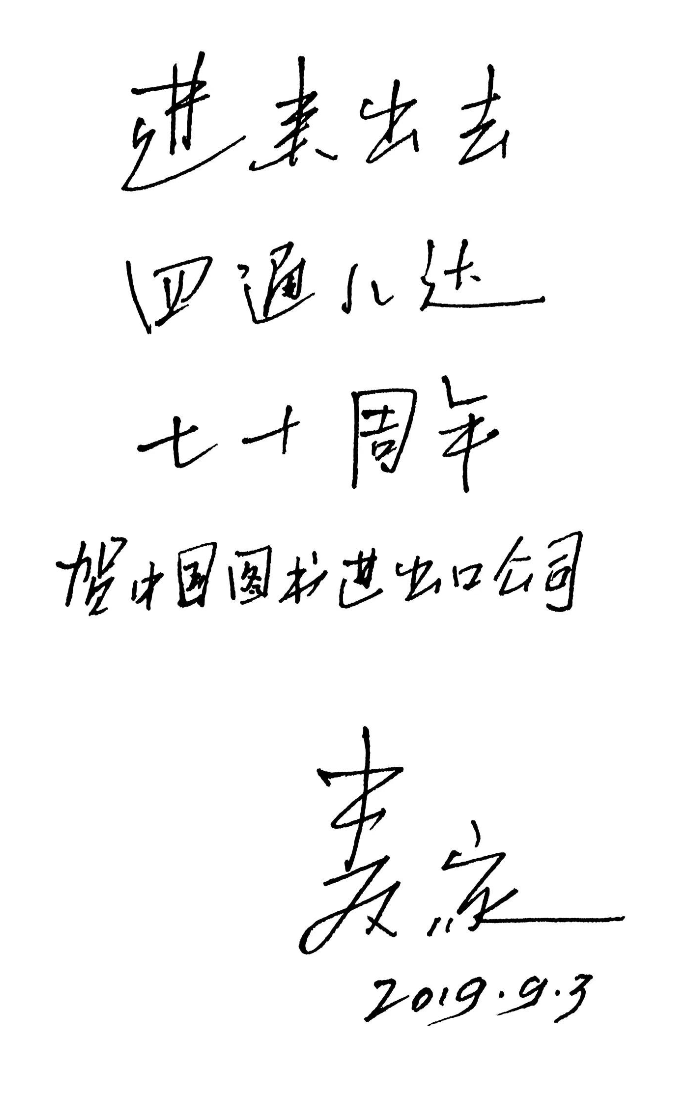 进来出去
四通八达
七十周年
贺中国图书进出口公司
麦家
2019.9.3